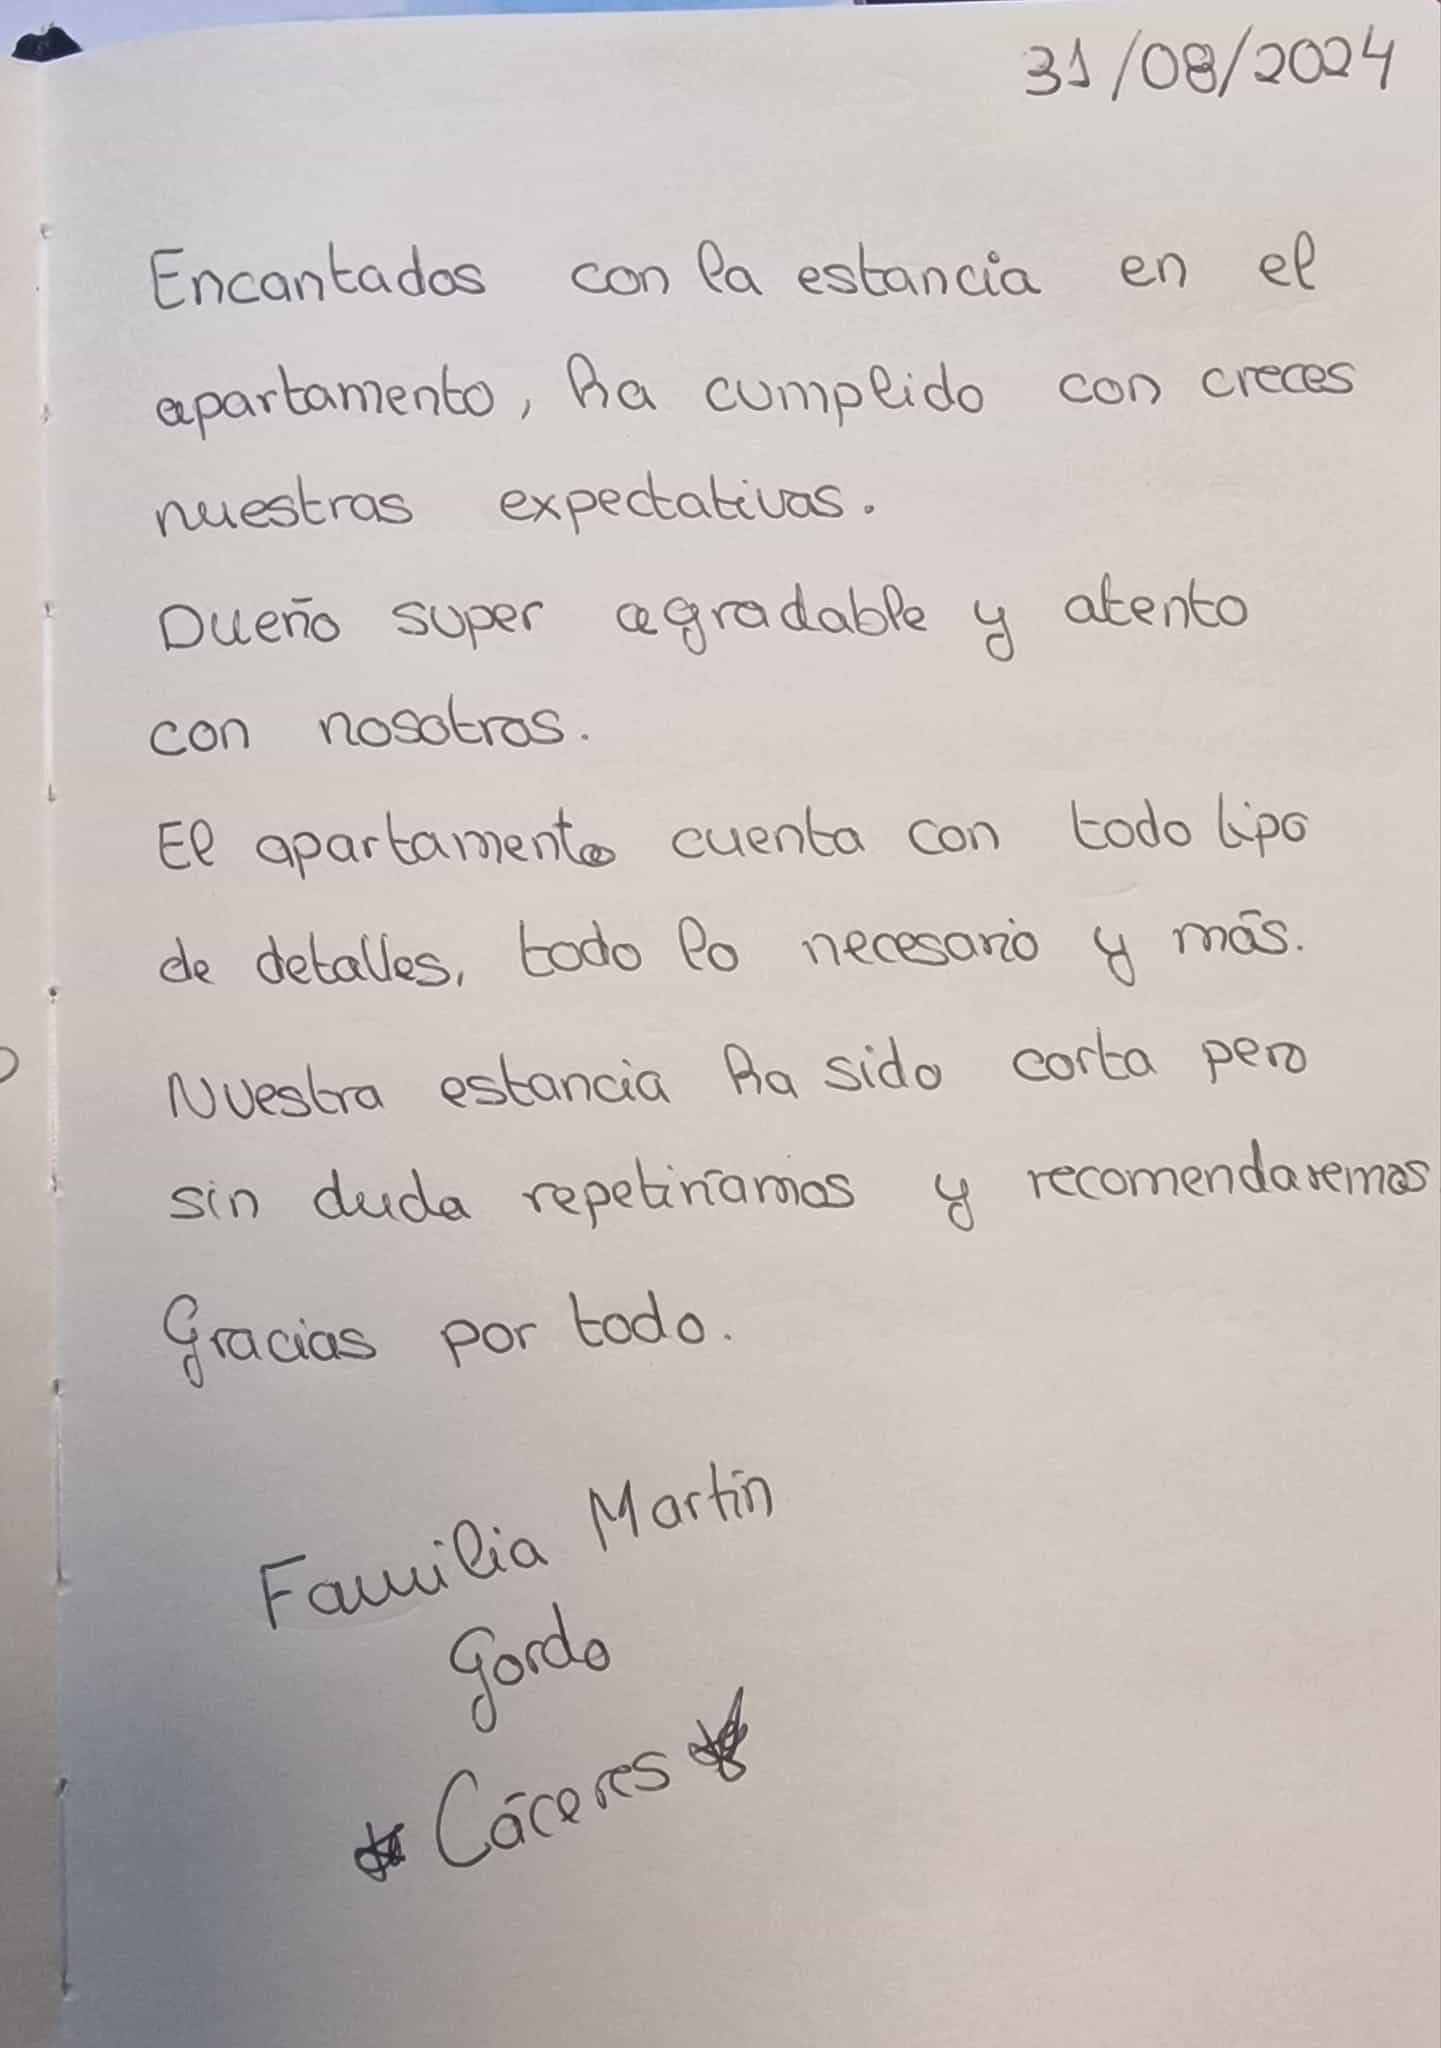 31/08/2024
Encantados con la estancia en el
apartamento, ha cumplido con creces
nuestras expectativas.
Dueño super agradable y atento
con nosotros.
El apartamento cuenta con todo tipo
de detalles, todo lo necesario y más.
Nuestra estancia ha sido corta pero
sin duda repetiríamos y recomendaremos
Gracias por todo.
Familia Martín
Gordo
Cáceres